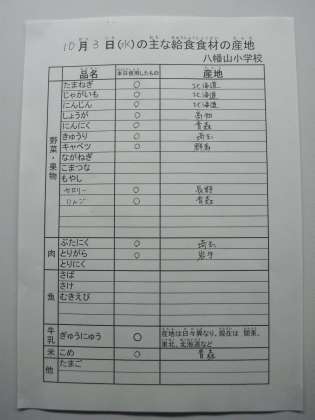 10月3日(水)の主な給食食材の産地
八幡山小学校
品名 本日使用したもの 産地
野菜・果物
たまねぎ ○ 北海道
じゃがいも ○ 北海道
にんじん ○ 北海道
しょうが ○ 高知
にんにく ○ 青森
きゅうり ○ 埼玉
キャベツ ○ 群馬
ながねぎ
こまつな
もやし
セロリー ○ 長野
りんご ○ 青森
肉
ぶたにく ○ 埼玉
とりがら ○ 岩手
とりにく
魚
さば
さけ
むきえび
牛乳
ぎゅうにゅう ○ 産地は日々異なり、現在は 関東、
東北、北海道など
米 こめ ○ 青森
他 たまご